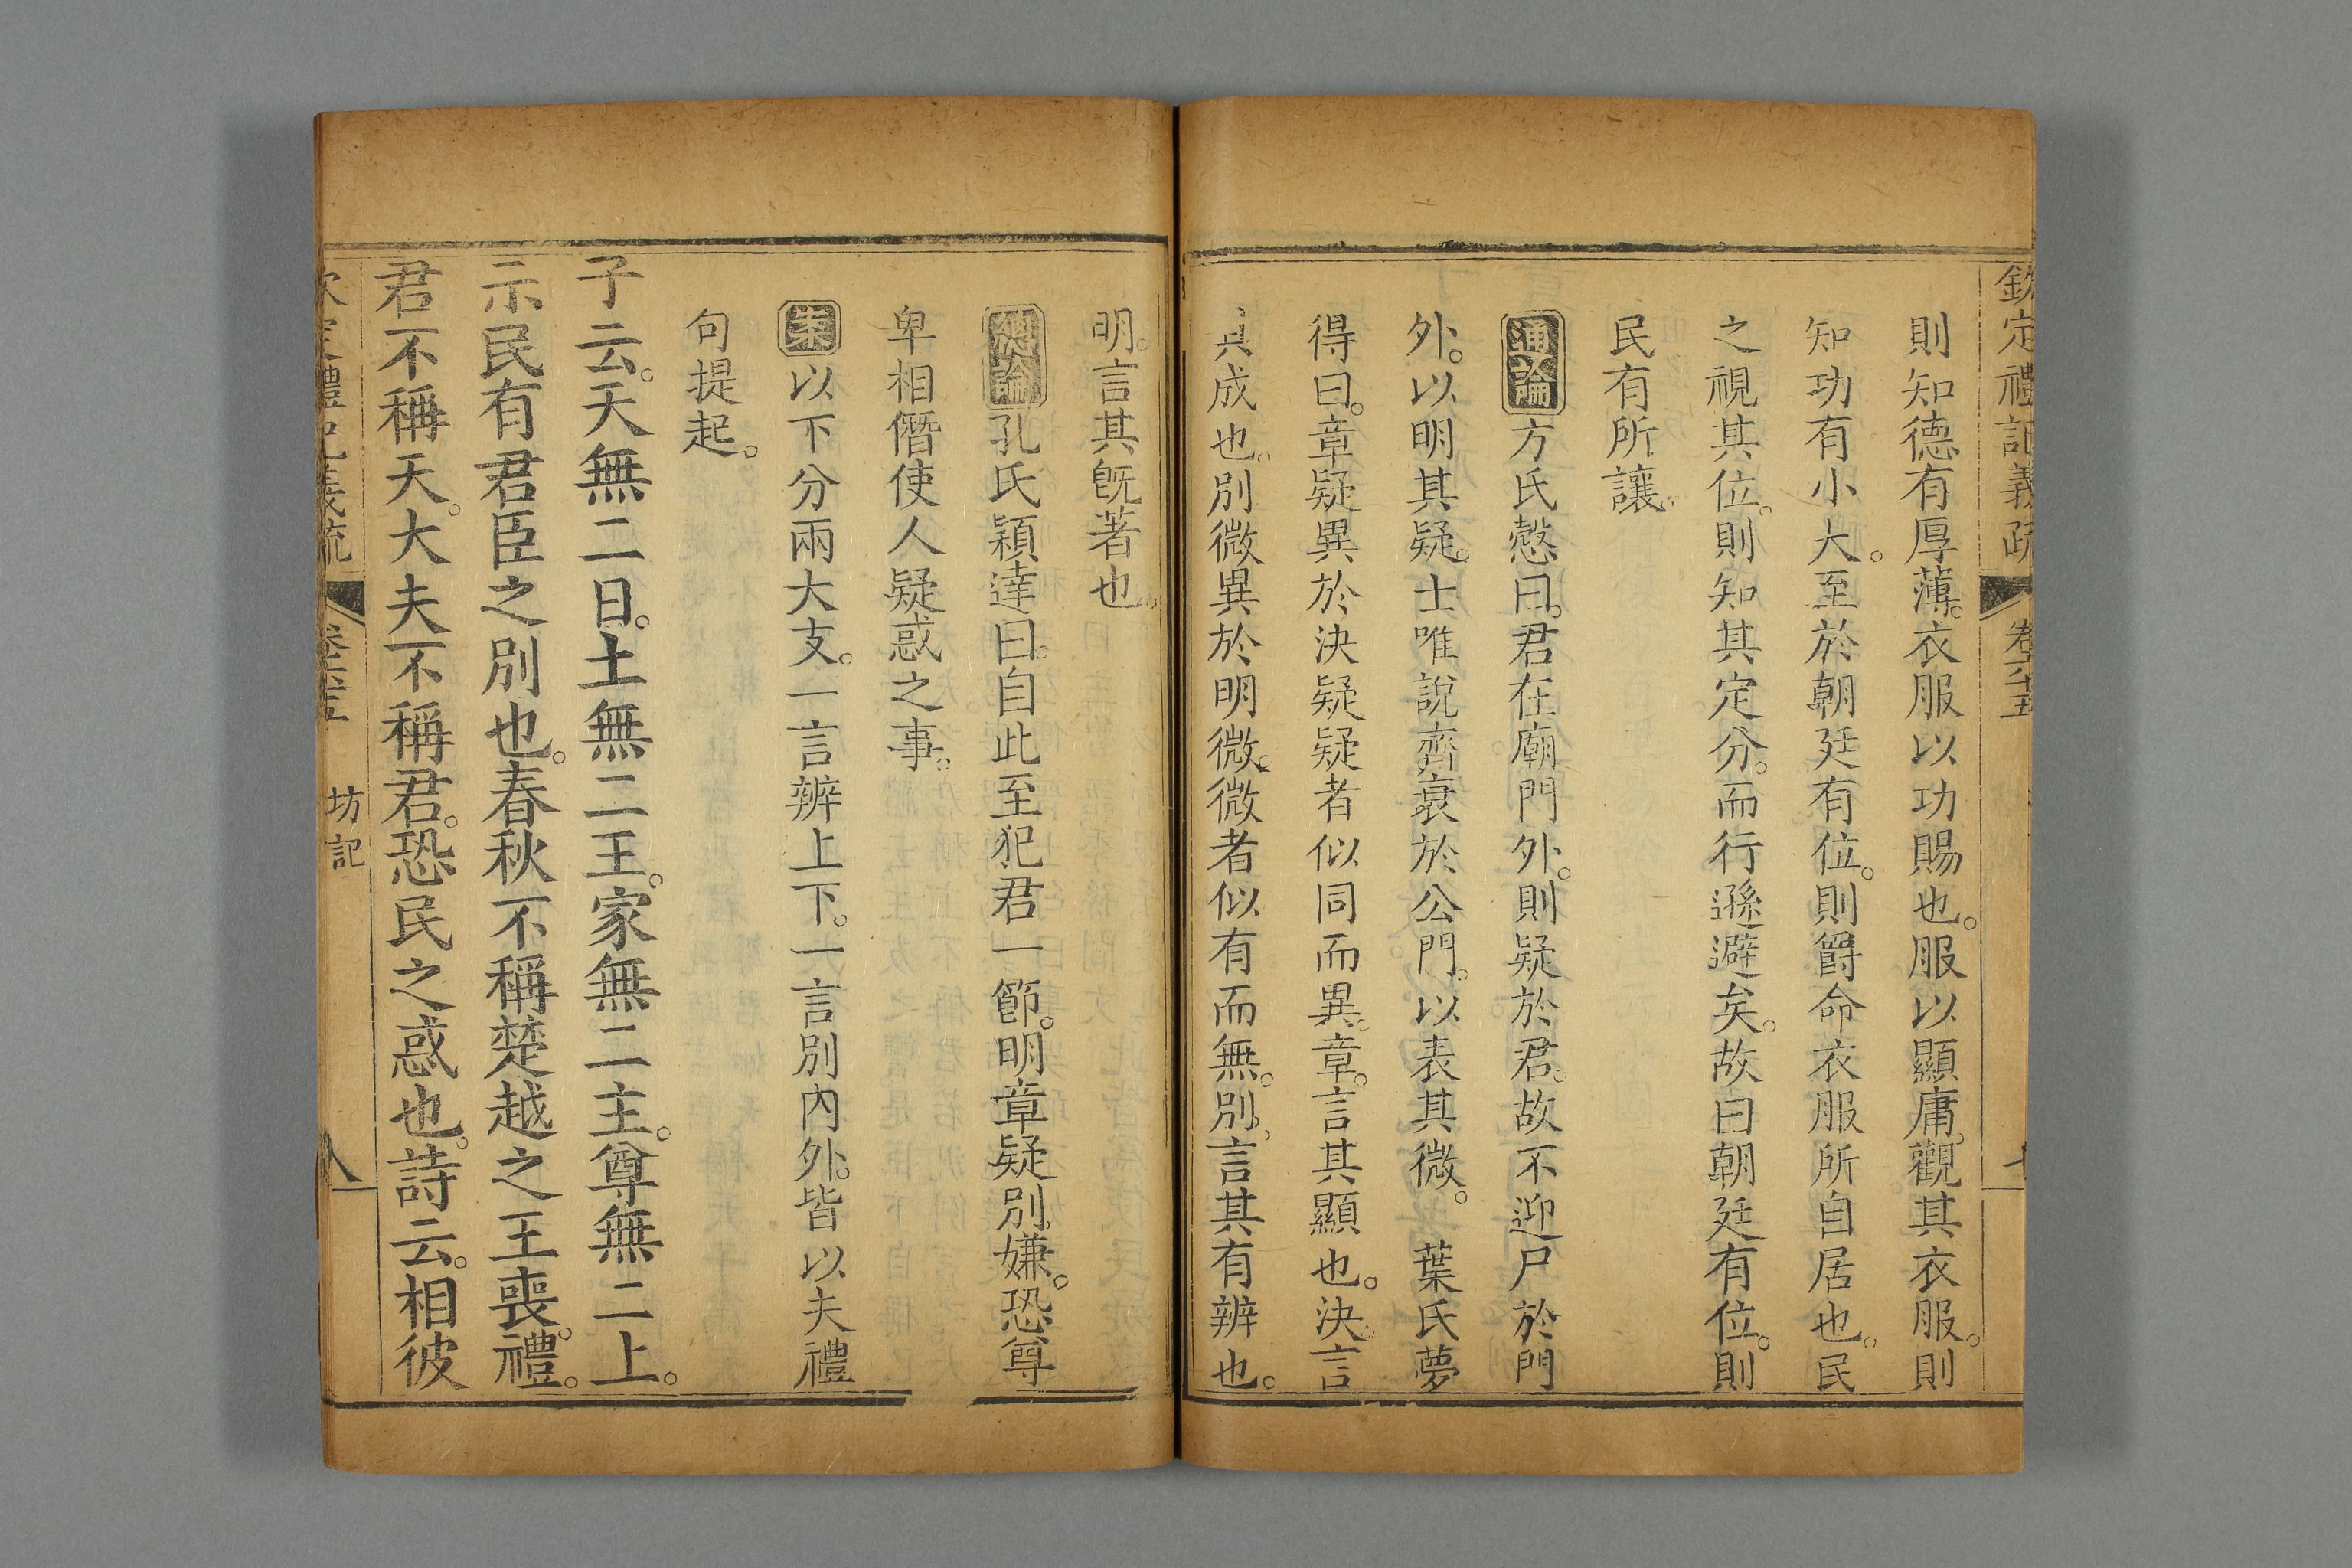 欽定禮記義疏 卷六十五
則知德有厚薄。衣服以功賜也。服以顯庸。觀其衣服。則
知功有小大。至於朝廷有位。則爵命衣服所自居也。民
之視其位。則知其定分。而行遜避矣。故曰朝廷有位。則
民有所讓。
通論方氏慤曰。君在廟門外。則疑於君。故不迎尸於門
外。以明其疑。士唯說齊衰於公門。以表其微。 葉氏夢
得曰。章疑異於決疑疑者似同而異。章。言其顯也。決。言
其成也。別微異於明微。微者似有而無。別。言其有辨也。
明。言其旣著也。
總論孔氏穎達曰。自此至犯君一節。明章疑別嫌。恐尊
卑相僭使人疑惑之事。
案以下分兩大支。一言辨上下。一言別內外。皆以夫禮
句提起。
子云。天無二日。土無二王。家無二主。尊無二上。
示民有君臣之別也。春秋不稱楚越之王喪。禮。
君不稱天。大夫不稱君。恐民之惑也。詩云。相彼
欽定禮記義疏 卷六十五 坊記 八